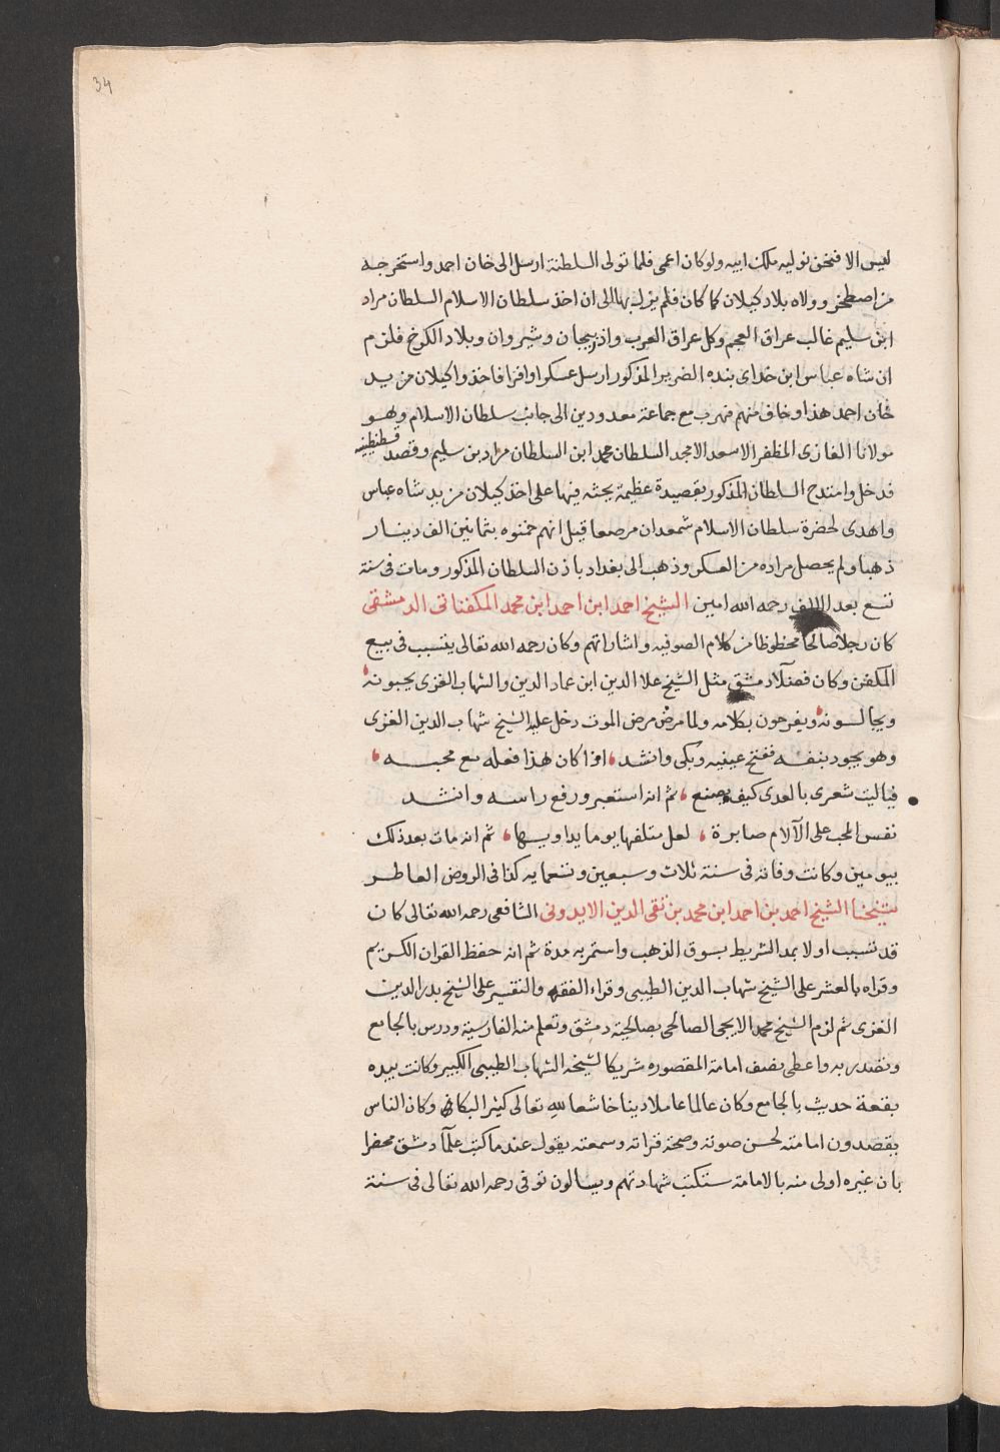 34
ليس الا فنحن نوليه ملك ابيه ولو كان اعمى فلما تولى السلطنة ارسل الى خان احمد واستخرجه
من اصطخر وولاه بلاد كيلان كما كان فلم يزل بها الى ان اخذ سلطان الاسلام السلطان مراد
ابن سليم غالب عراق العجم وكل عراق العرب واذربيجان وشيروان وبلاد الكرج فلزم
ان شاه عباس ابن خداى بنده الضرير المذكور ارسل عسكرا وافرا فاخذوا كيلان من يد
خان احمد هذا وخاف منهم فهرب مع جماعة معدودين الى جانب سلطان الاسلام وهو
مولانا الغازى المظفر الاسعد الامجد السلطان محمد ابن السلطان مراد بن سليم وقصد قسطنطينيه
فدخل وامتدح السلطان المذكور بقصيدة عظيمة يحثه فيها على اخذ كيلان من يد شاه عباس
واهدى لحضرة سلطان الاسلام شمعدان مرصعا قيل انهم خمنوه بثمانين الف دينار
ذهبا ولم يحصل مراده من العسكر وذهب الى بغداد باذن السلطان المذكور ومات فى سنة
تسع بعد الالف رحمه الله امين الشيخ احمد ابن احمد ابن محمد المكفناتى الدمشقى
كان رجلا صالحا محظوظا من كلام الصوفيه واشاراتهم وكان رحمه الله تعالى يتسبب فى بيع
المكفن وكان فضلآ دمشق مثل الشيخ علا الدين ابن عماد الدين والشهاب الغزى يحبونه
ويجالسونه ويفرحون بكلامه ولما مرض مرض الموت دخل عليه الشيخ شهاب الدين الغزى
وهو يجود بنفسه ففتح عينيه وبكى وانشد اذا كان هذا فعله مع محبه
فياليت شعرى بالعدى كيف يصنع ثم انه استعبر ورفع راسه وانشد
نفس المحب على الآلام صابرة لعل متلفها يوما يداويها ثم انه مات بعد ذلك
بيومين وكانت وفاته فى سنة ثلاث وسبعين وتسعمايه كذا فى الروض العاطر
شيخنا الشيخ احمد بن احمد ابن محمد بن تقى الدين الايدونى الشافعى رحمه الله تعالى كان
قد تسبب اولا بمد الشريط بسوق الذهب واستمر به مدة ثم انه حفظ القران الكريم
وقراه بالعشر على الشيخ شهاب الدين الطيبى وقراء الفقه والتفسير على الشيخ بدر الدين
الغزى ثم لزم الشيخ محمد الايجى الصالحى بصالحية دمشق وتعلم منه الفارسية ودرس بالجامع
وتصدر به واعطى نصف امامة المقصوره شريكا لشيخه الشهاب الطيبى الكبير وكانت بيده
بقعة حديث بالجامع وكان عالما عاملا دينا خاشعا لله تعالى كثير البكا وكان الناس
يقصدون امامته لحسن صوته وصحة قراته وسمعته يقول عندما كتب علمآ دمشق محضرا
بان غيره اولى منه بالامامة ستكتب شهادتهم ويسالون توفى رحمه الله تعالى فى سنة